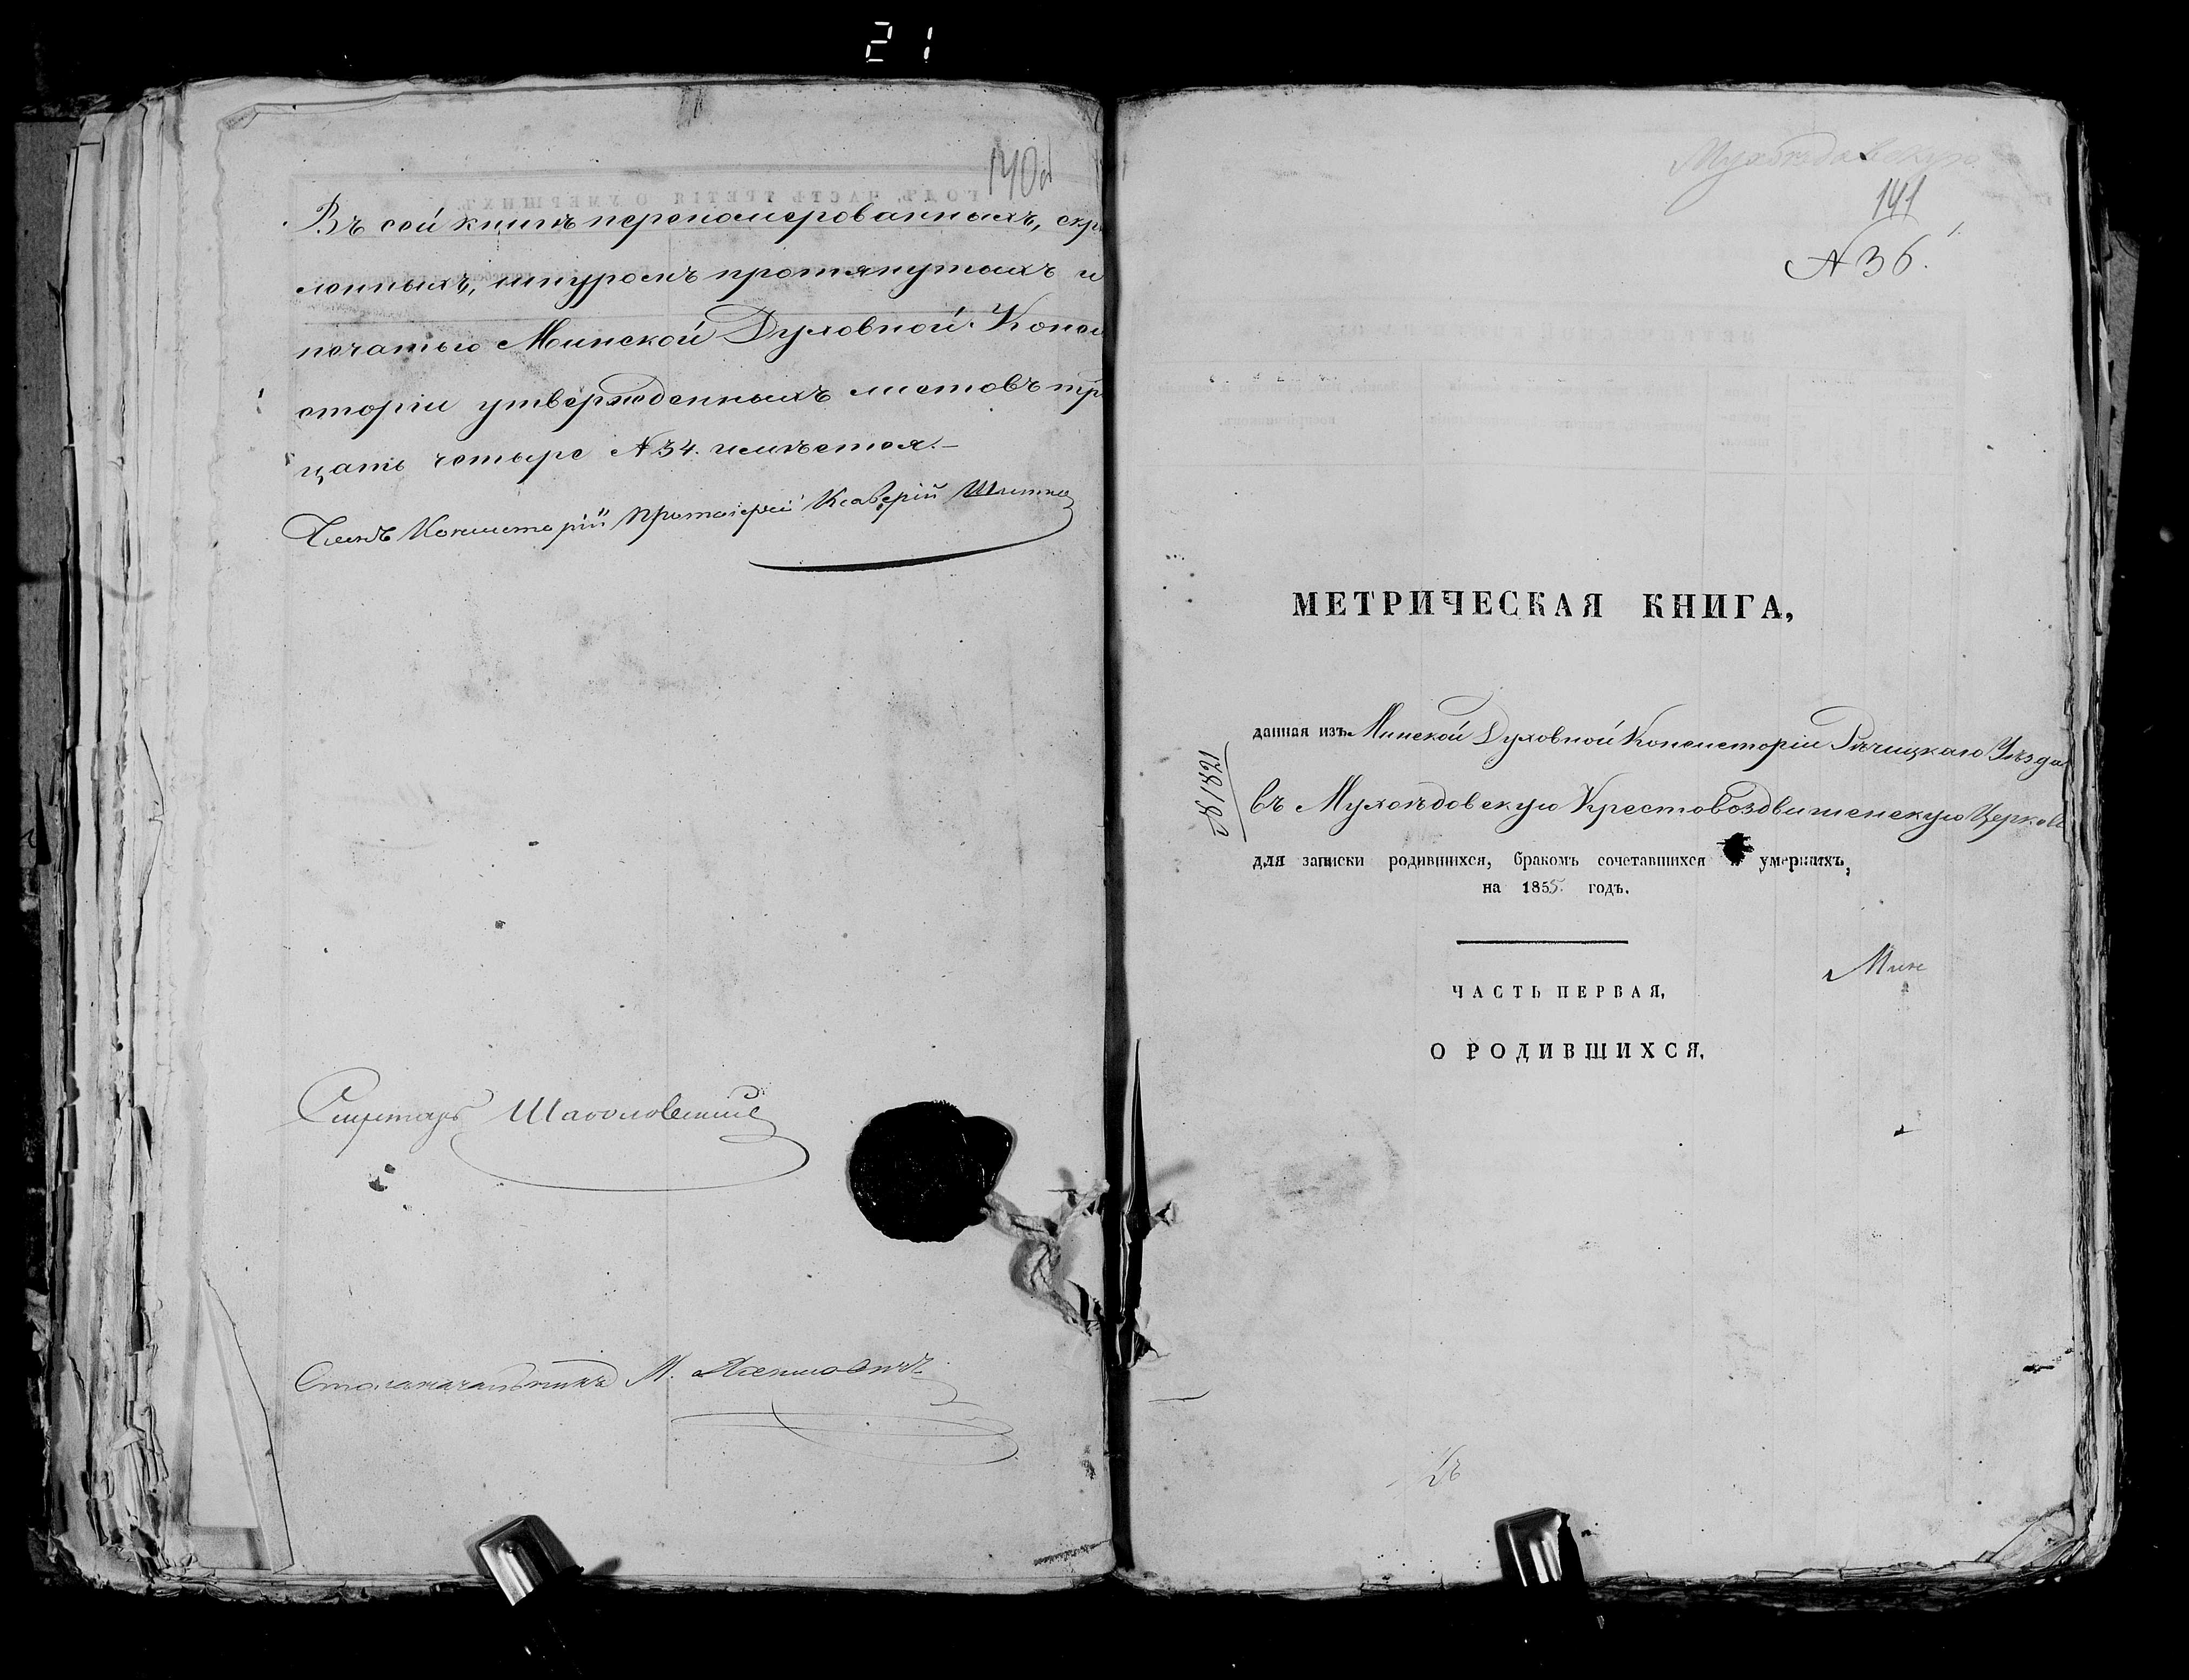 21
140об
Въ сей книгѣ перенумерованныхъ, скрѣ
пленныхъ, шнуромъ протянутыхъ и
печатью Минской Духовной Конси
сторіи утвержденныхъ листовъ трид
цать четыре №34. имѣется.
Членъ Консисторіи Протоіерей Ксаверій
Секретарь
Столоначальникъ М.
Мухоѣдовскую
141
№ 36.
МЕТРИЧЕСКАЯ КНИГА,
данная изъ Минской Духовной Консисторіи Рѣчицкаго Уѣзда
въ Мухоѣдовскую Крестовоздвиженскую Церковь
№ 1821
для записки родившихся, бракомъ сочетавшихся и умершихъ,
на 1855. годъ.
Мин
ЧАСТЬ ПЕРВАЯ,
О РОДИВШИХСЯ.